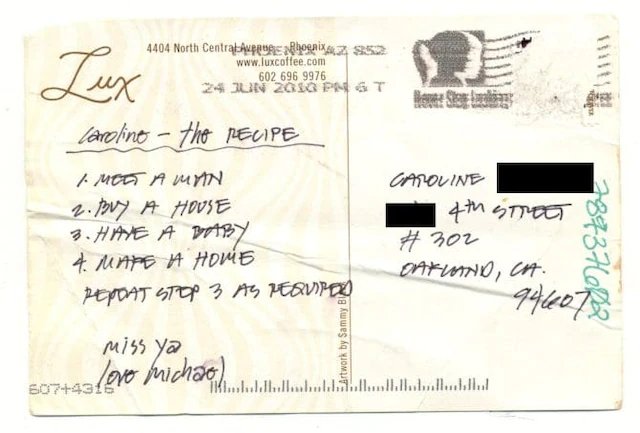 Lux
4404 North Central Avenue Phoenix
www.luxcoffee.com
602 696 9976
PHOENIX AZ 852
24 JUN 2010 PM 6 T
Caroline - the RECIPE
1. MEET A MAN
2. BUY A HOUSE
3. HAVE A BABY
4. MAKE A HOME
REPEAT STEP 3 AS REQUIRED
miss ya
love michael
607+4316
Artwork by Sammy
CAROLINE
4TH STREET
# 302
OAKLAND, CA.
94607